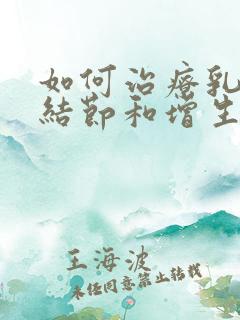 如何治疗乳
结節和增生
王海波
未经同意禁止转载